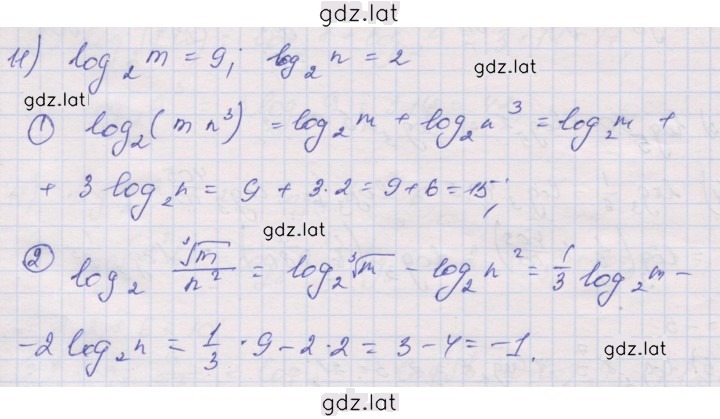 gdz.lat
11) log₂ m = 9; log₂ n = 2
gdz.lat
gdz.lat
① log₂(m n³) = log₂ m + log₂ n³ = log₂ m +
+ 3 log₂ n = 9 + 3·2 = 9 + 6 = 15;
gdz.lat
② log₂ ∛m / n² = log₂ ∛m − log₂ n² = 1/3 log₂ m −
− 2 log₂ n = 1/3 · 9 − 2·2 = 3 − 4 = −1.
gdz.lat
gdz.lat